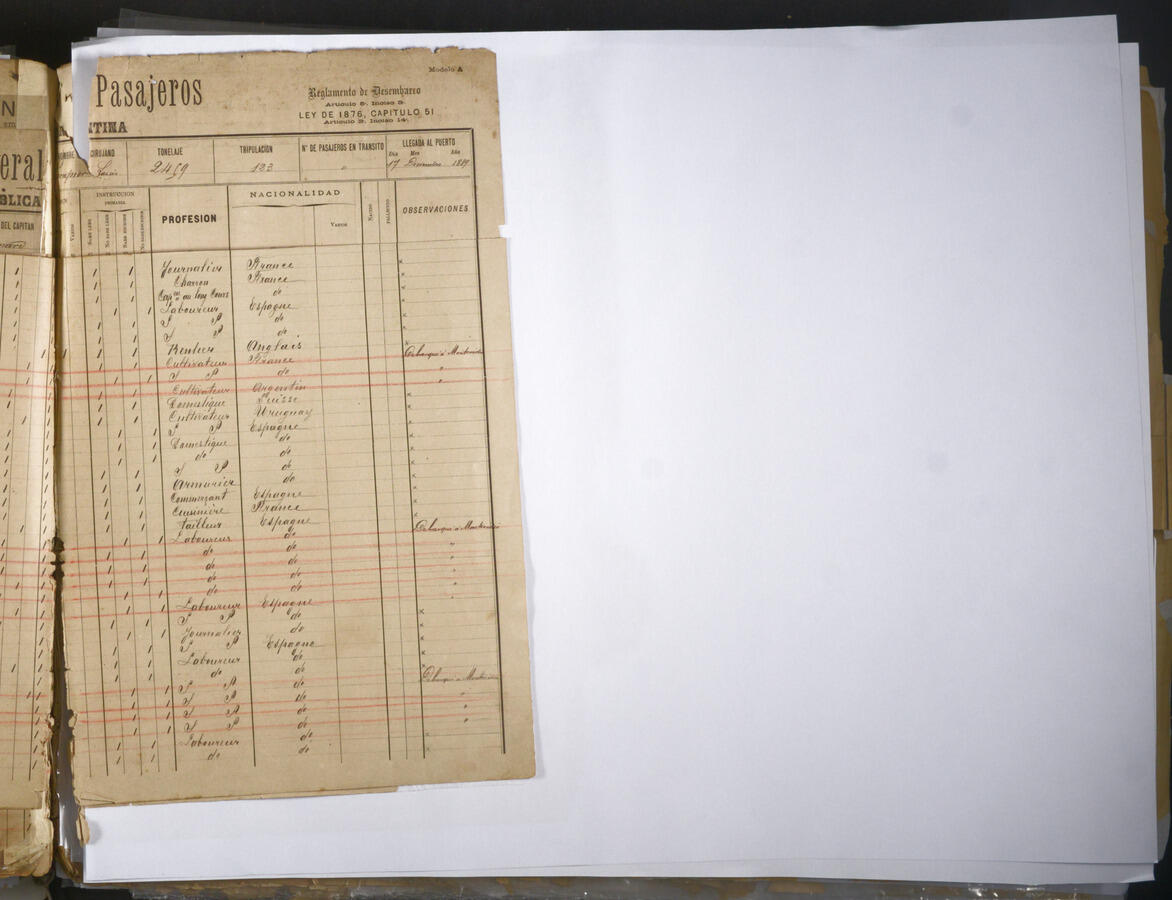 Modelo A
Pasajeros
Reglamento de Desembarco
Articulo 6º Inciso 3º
LEY DE 1876, CAPITULO 51
Articulo 2º Inciso 14º
NTINA
CIRUJANO
TONELAJE
TRIPULACIÓN
Nº DE PASAJEROS EN TRANSITO
LLEGADA AL PUERTO
Dia Mes Año
2469
133
"
17 Decembre 1889
eral
BLICA
DEL CAPITAN
INSTRUCCION
PRIMARIA
PROFESION
NACIONALIDAD
Varios
OBSERVACIONES
Journalier France
Charron France
Capne au long Cours do
Laboureur Espagne
S P do
S P do
Rentier Anglais
Cultivateur France Débarqué à Montevideo
S P do "
Cultivateur Argentin "
Domestique Suisse
Cultivateur Uruguay
S P Espagne
Domestique do
do do
S P do
Armurier do
Commerçant Espagne
Cuisinière France
Tailleur Espagne
Laboureur do Débarqué à Montevideo
do do "
do do "
do do "
do do "
Laboureur Espagne "
S P do
Journalier do
S P Espagne
Laboureur do
do do
S P do Débarqué à Montevideo
S P do "
S P do "
S P do "
Laboureur do
do do